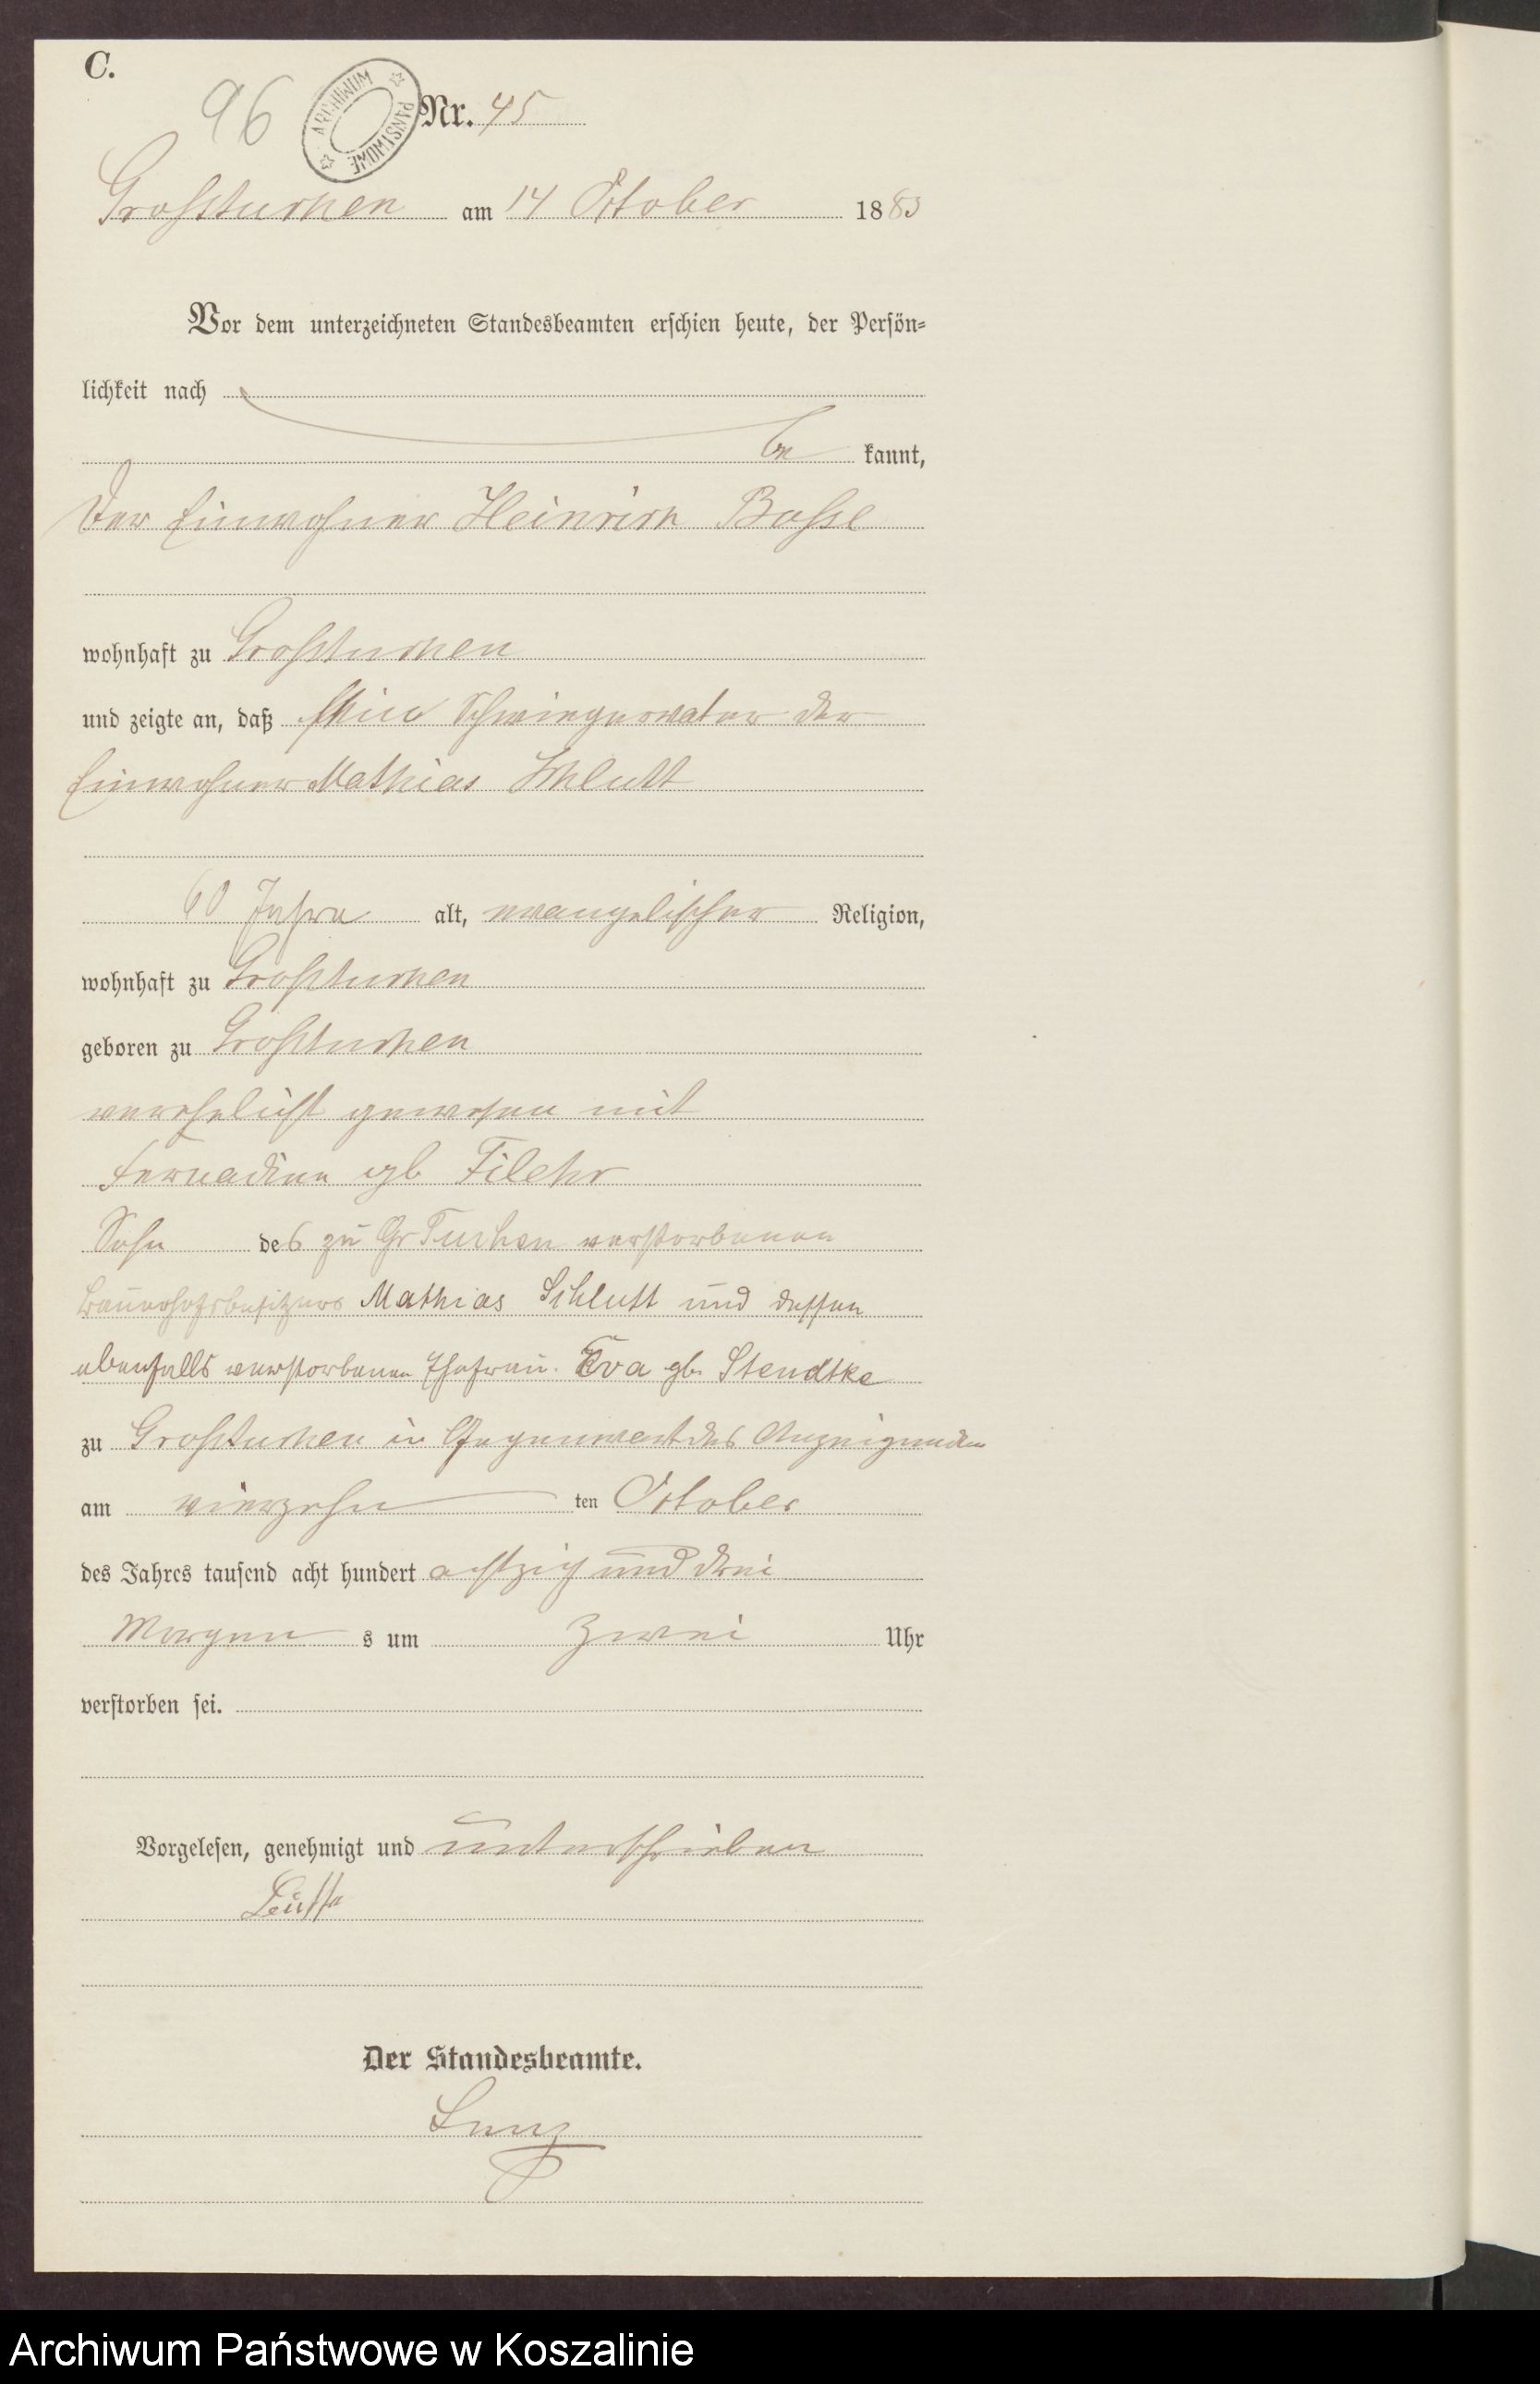 C.
96
ARCHIWUM PAŃSTWOWE
Nr. 45
Großtuchen am 14 October 1883
Vor dem unterzeichneten Standesbeamten erschien heute, der Persön-
lichkeit nach
be kannt,
Der Einwohner Heinrich Bosse
wohnhaft zu Großtuchen
und zeigte an, daß Schwiegervater der
Einwohner Mathias Schlutt
60 Jahre alt, evangelischer Religion,
wohnhaft zu Großtuchen
geboren zu Großtuchen
verehelicht gewesen mit
gb
Sohn des zu Gr Tuchen verstorbenen
Bauerhofsbesitzers Mathias Schlutt und dessen
ebenfalls verstorbenen Ehefrau Eva gb. Stendtke
zu Großtuchen in Gegenwart des Anzeigenden
am vierzehn ten October
des Jahres tausend acht hundert achtzig und drei
Morgen s um zwei Uhr
verstorben sei.
Vorgelesen, genehmigt und unterschrieben
Der Standesbeamte.
Archiwum Państwowe w Koszalinie